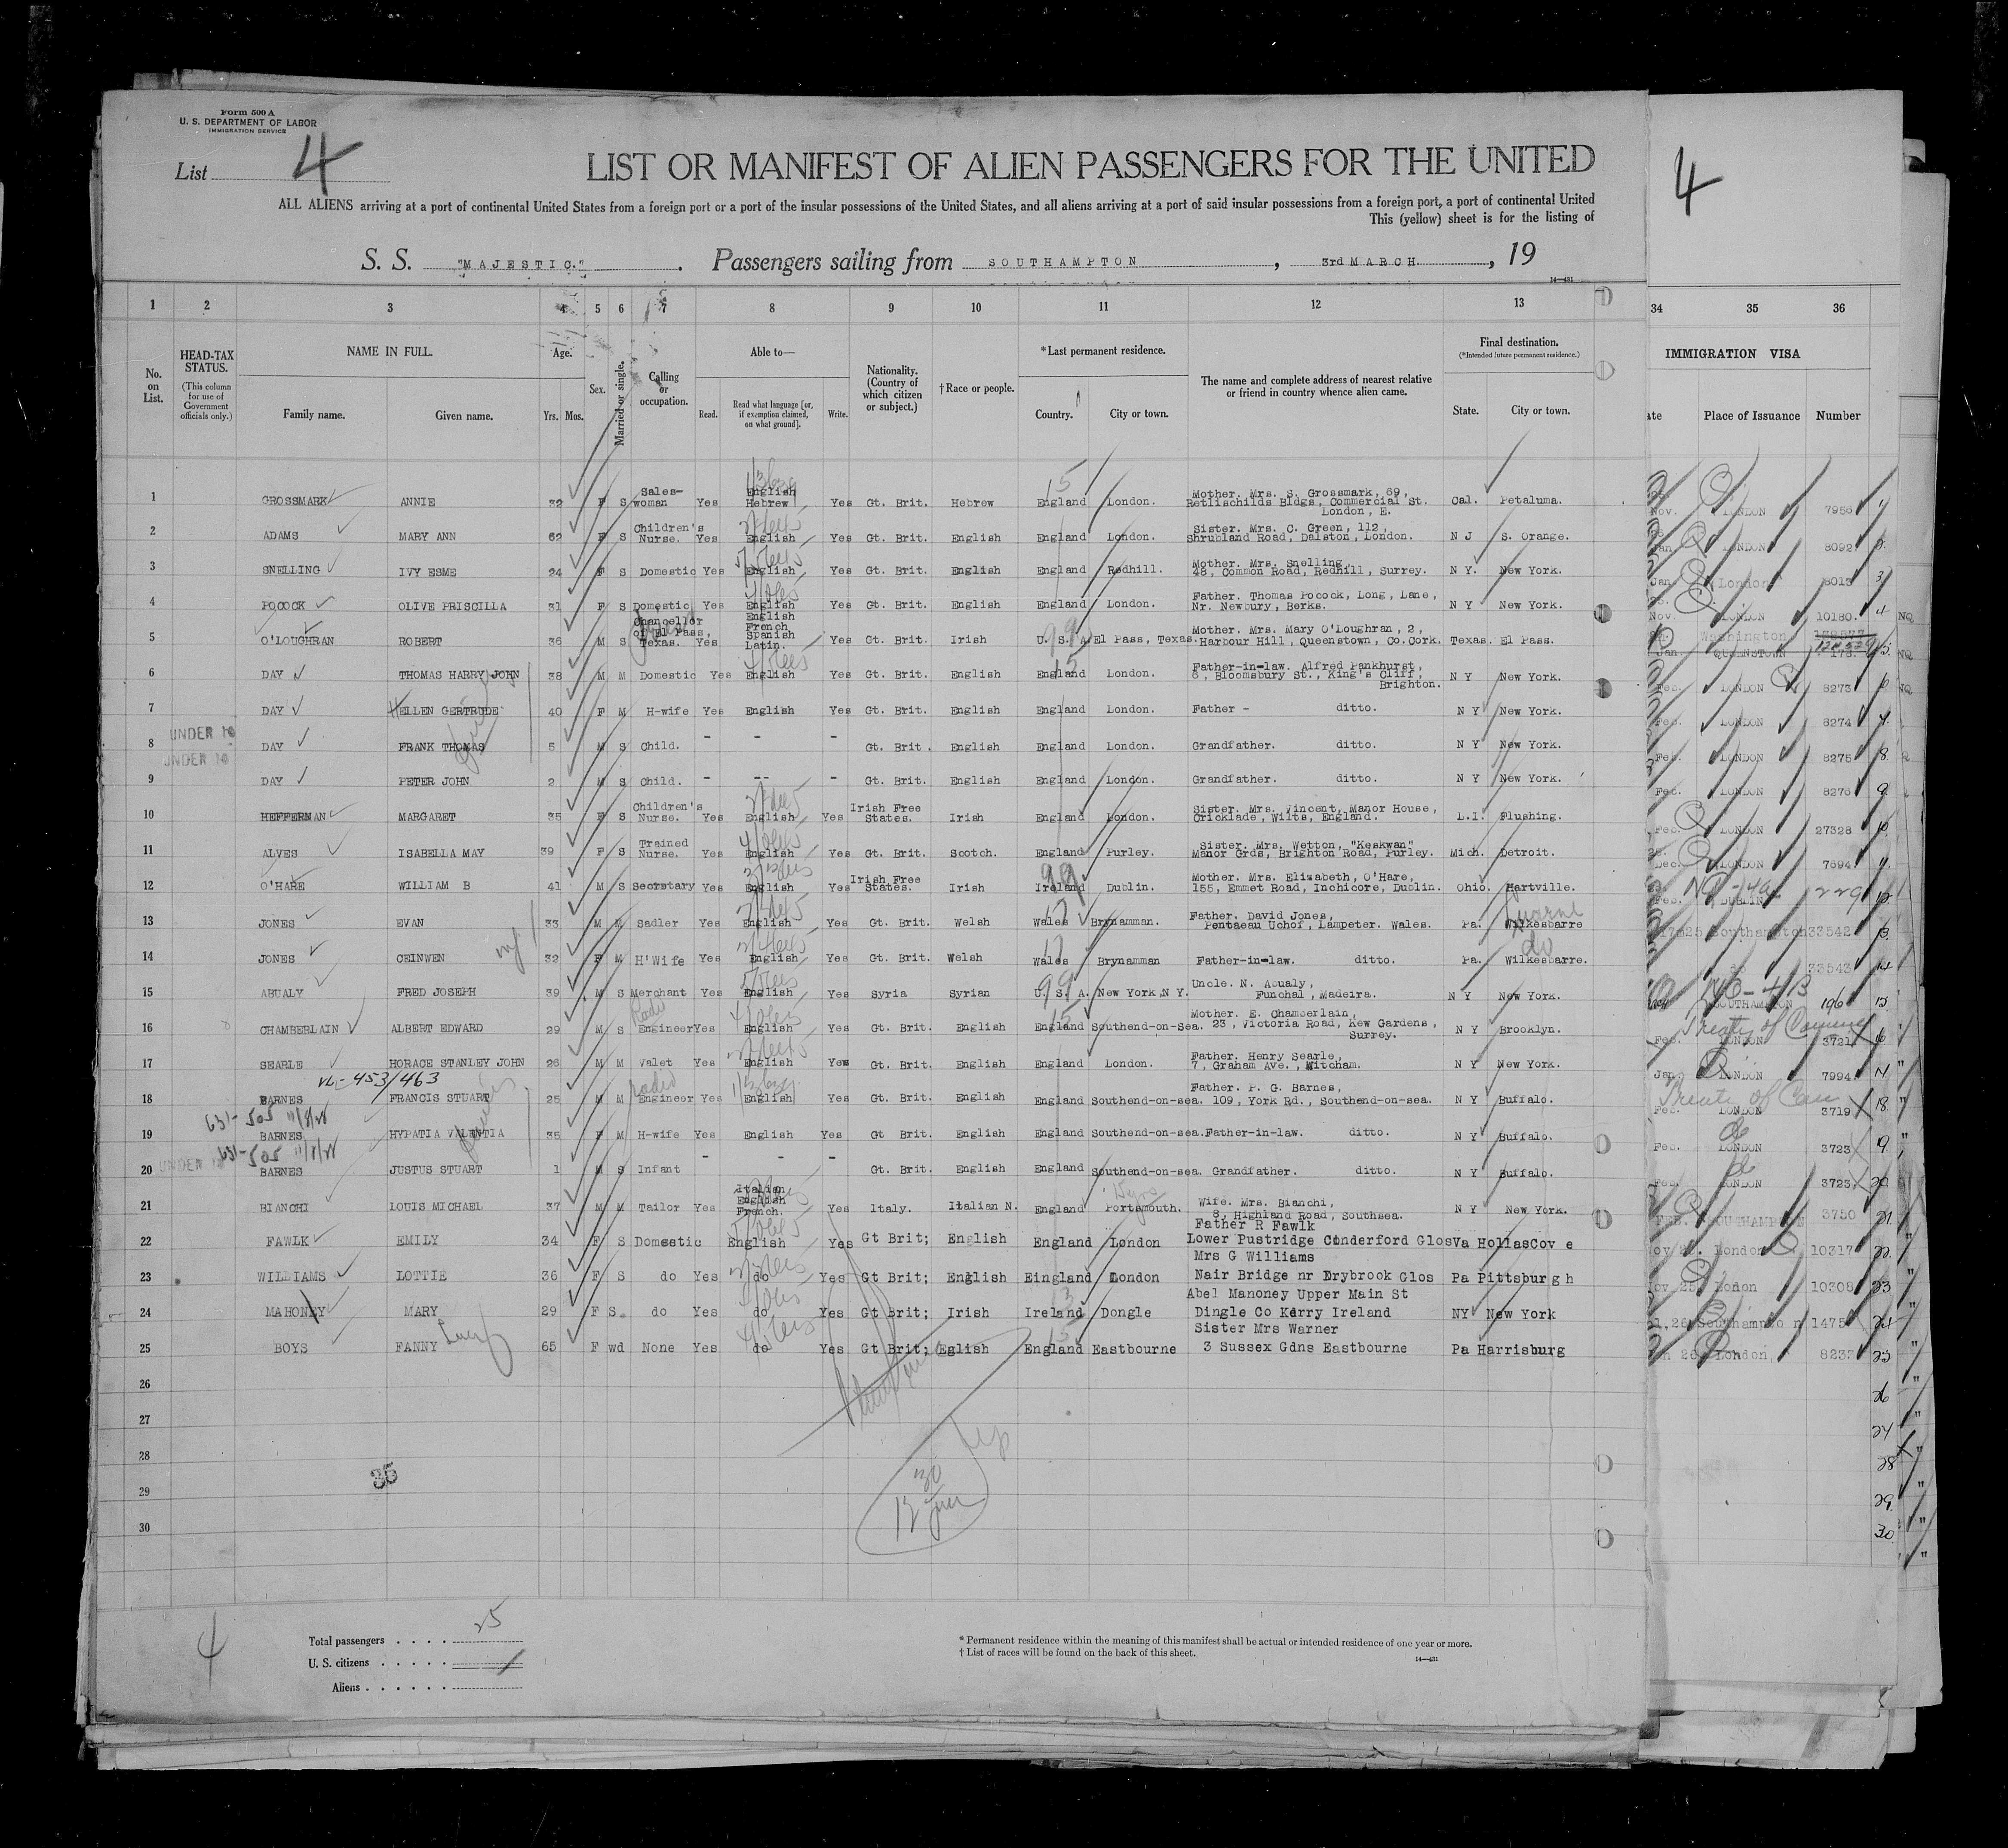 Form 500 A
U. S. DEPARTMENT OF LABOR
IMMIGRATION SERVICE
List 4
LIST OR MANIFEST OF ALIEN PASSENGERS FOR THE UNITED
ALL ALIENS arriving at a port of continental United States from a foreign port or a port of the insular possessions of the United States, and all aliens arriving at a port of said insular possessions from a foreign port, a port of continental United
This (yellow) sheet is for the listing of
S. S. "MAJESTIC." Passengers sailing from SOUTHAMPTON, 3rd MARCH., 19
14—431
4
1 2 3 4 5 6 7 8 9 10 11 12 13 34 35 36
No. on List.
HEAD-TAX STATUS.
(This column for use of Government officials only.)
NAME IN FULL.
Family name. Given name.
Age.
Yrs. Mos.
Sex.
Married or single.
Calling or occupation.
Able to—
Read. Read what language [or, if exemption claimed, on what ground]. Write.
Nationality. (Country of which citizen or subject.)
†Race or people.
*Last permanent residence.
Country. City or town.
The name and complete address of nearest relative or friend in country whence alien came.
Final destination.
(*Intended future permanent residence.)
State. City or town.
IMMIGRATION VISA
ate Place of Issuance Number
1 GROSSMARK ANNIE 32 F S Sales-woman Yes English Hebrew Yes Gt. Brit. Hebrew England London. Mother. Mrs. S. Grossmark, 69, Retlischilds Bldgs, Commercial St. London, E. Cal. Petaluma. Nov. LONDON 7956
2 ADAMS MARY ANN 62 F S Children's Nurse. Yes English Yes Gt. Brit. English England London. Sister. Mrs. C. Green, 112, Shrubland Road, Dalston, London. N J S. Orange. Jan LONDON 8092
3 SNELLING IVY ESME 24 F S Domestic Yes English Yes Gt. Brit. English England Redhill. Mother. Mrs. Snelling, 48, Common Road, Redhill, Surrey. N Y. New York. Jan London 8013
4 POCOCK OLIVE PRISCILLA 31 F S Domestic Yes English Yes Gt. Brit. English England London. Father. Thomas Pocock, Long, Lane, Nr. Newbury, Berks. N Y New York. Nov. LONDON 10180. NQ
5 O'LOUGHRAN ROBERT 36 M S Chancellor of El Pass, Texas. Yes English French Spanish Latin. Yes Gt. Brit. Irish U. S. A. El Pass, Texas. Mother. Mrs. Mary O'Loughran, 2, Harbour Hill, Queenstown, Co. Cork. Texas. El Pass. Jan. Washington QUEENSTOWN 176. NQ
6 DAY THOMAS HARRY JOHN 38 M M Domestic Yes English Yes Gt. Brit. English England London. Father-in-law. Alfred Pankhurst, 8, Bloomsbury St., King's Cliff, Brighton. N Y New York. Feb. LONDON 8273 NQ
7 DAY HELLEN GERTRUDE 40 F M H-wife Yes English Yes Gt. Brit. English England London. Father - ditto. N Y New York. Feb. LONDON 8274
UNDER 16
8 DAY FRANK THOMAS 5 M S Child. - - - Gt. Brit. English England London. Grandfather. ditto. N Y New York. Feb. LONDON 8275
UNDER 16
9 DAY PETER JOHN 2 M S Child. - -- - Gt. Brit. English England London. Grandfather. ditto. N Y New York. Feb. LONDON 8276
10 HEFFERMAN MARGARET 35 F S Children's Nurse. Yes English Yes Irish Free States. Irish England London. Sister. Mrs. Vincent, Manor House, Cricklade, Wilts, England. L.I. Flushing. Feb. LONDON 27328
11 ALVES ISABELLA MAY 39 F S Trained Nurse. Yes English Yes Gt. Brit. Scotch. England Purley. Sister. Mrs. Wetton, "Keskwan" Manor Grds, Brighton Road, Purley. Mich. Detroit. Dec. LONDON 7694
12 O'HARE WILLIAM B 41 M S Secretary Yes English Yes Irish Free States. Irish Ireland Dublin. Mother. Mrs. Elizabeth, O'Hare, 155, Emmet Road, Inchicore, Dublin. Ohio. Hartville. Feb. DUBLIN 229
13 JONES EVAN 33 M M Sadler Yes English Yes Gt. Brit. Welsh Wales Brynamman. Father. David Jones, Pentaeau Uchof, Lampeter. Wales. Pa. Wilkesbarre Southampton 33542
14 JONES CEINWEN 32 F M H'Wife Yes English Yes Gt. Brit. Welsh Wales Brynamman Father-in-law. ditto. Pa. Wilkesbarre. do 33543
15 ABUALY FRED JOSEPH 39 M S Merchant Yes English Yes Syria Syrian U. S. A. New York, N Y. Uncle. N. Acualy, Funchal, Madeira. N Y New York. SOUTHAMPTON 196
16 CHAMBERLAIN ALBERT EDWARD 29 M S Engineer Yes English Yes Gt. Brit. English England Southend-on-Sea. Mother. E. Chamberlain, 23, Victoria Road, Kew Gardens, Surrey. N Y Brooklyn. Feb. LONDON 3721
17 SEARLE HORACE STANLEY JOHN 26 M M Valet Yes English Yes Gt. Brit. English England London. Father. Henry Searle, 7, Graham Ave., Mitcham. N Y New York. Jan LONDON 7994
VL-453/463
18 BARNES FRANCIS STUART 25 M M Engineer Yes English Yes Gt. Brit. English England Southend-on-sea. Father. P. G. Barnes, 109, York Rd., Southend-on-sea. N Y Buffalo. Feb. LONDON 3719
631-505
19 BARNES HYPATIA VALENTIA 35 F M H-wife Yes English Yes Gt Brit. English England Southend-on-sea. Father-in-law. ditto. N Y Buffalo. Feb. LONDON 3723
631-505
20 BARNES JUSTUS STUART 1 M S Infant - - - Gt. Brit. English England Southend-on-sea. Grandfather. ditto. N Y Buffalo. Feb. LONDON 3723
21 BIANCHI LOUIS MICHAEL 37 M M Tailor Yes Italian English French. Yes Italy. Italian N. England Portsmouth. Wife. Mrs. Bianchi, 8, Highland Road, Southsea. N Y New York. FEB. SOUTHAMPTON 3750
22 FAWLK EMILY 34 F S Domestic English Yes Gt Brit; English England London Father R Fawlk Lower Pustridge Cinderford Glos Va HollasCov e London 10317
23 WILLIAMS LOTTIE 36 F S do Yes do Yes Gt Brit; English Eingland London Mrs G Williams Nair Bridge nr Drybrook Glos Pa Pittsburg h London 10308
24 MAHONEY MARY 29 F S. do Yes do Yes Gt Brit; Irish Ireland Dongle Abel Manoney Upper Main St Dingle Co Kerry Ireland NY New York Southampton 1475
25 BOYS FANNY Lucy 65 F wd None Yes do Yes Gt Brit; Eglish England Eastbourne Sister Mrs Warner 3 Sussex Gdns Eastbourne Pa Harrisburg London 8233
26
27
28
29
30
35
4
Total passengers 25
U. S. citizens
Aliens
* Permanent residence within the meaning of this manifest shall be actual or intended residence of one year or more.
† List of races will be found on the back of this sheet.
14—431